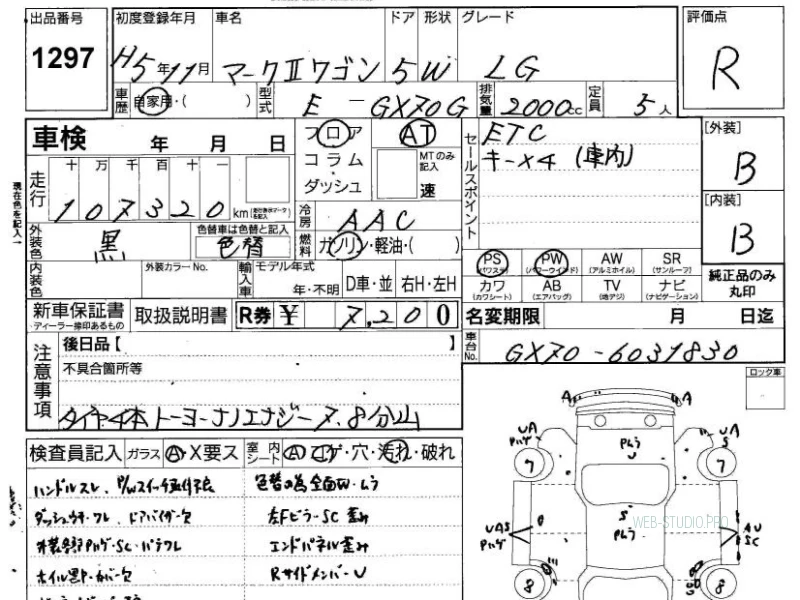 出品番号 初度登録年月 車名 ドア 形状 グレード 評価点
1297 H5年11月 マークⅡワゴン 5 W LG R
車歴 自家用・( ) 型式 E-GX70G 排気量 2000cc 定員 5人
車検 年 月 日 フロア AT セールスポイント ETC [外装]
コラム・ MTのみ記入 キー×4 (車内) B
ダッシュ 速
走行 十 万 千 百 十 一 [内装]
107320 km 冷房 AAC B
外装色 黒 色替車は色替と記入 色替 燃料 ガソリン・軽油・( )
PS (パワステ) PW (パワーウインド) AW (アルミホイル) SR (サンルーフ) 純正品のみ丸印
カワ (カワシート) AB (エアバッグ) TV (地デジ) ナビ (ナビゲーション)
内装色 外装カラーNo. 輸入車 モデル年式 年・不明 D車・並 右H・左H
新車保証書 ・ディーラー捺印あるもの 取扱説明書 R券 ¥ 7,200 名変期限 月 日迄
注意事項 後日品【 】 車台No. GX70-6031830
不具合箇所等 ロック車
タイヤ4本 トーヨーナノエナジー 7.8分山
現在色を記入→
検査員記入 ガラス A・X要ス 室内シート A コゲ・穴・汚れ・破れ
ハンドルスレ、P/Wスイッチ
色替の為全面W・ムラ
ダッシュウキ・ワレ、ドアバイザー欠 左Fピラー SC 歪み
エンドパネル歪み
Rサイドメンバー U
A A
UA Pハゲ Pムラ U UA S
7 7
UAS Pハゲ S Pムラ AU SC
8 8
WEB-STUDIO.PRO